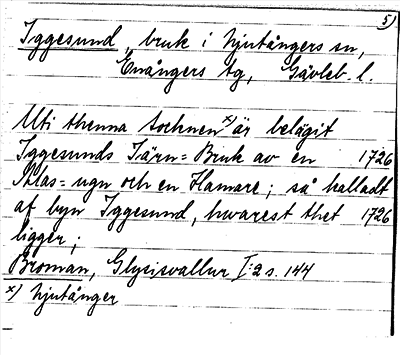 5)
Iggesund, bruk i Njutångers sn,
Enångers tg, Gävleb. l.
Uti thenna sochnen x) är belägit
Iggesunds Järn=Bruk av en 1726
Blas=ugn och en Hamare; så kalladt
af byn Iggesund, hwarest thet 1726
ligger;
Broman, Glysisvallur I:2 s. 144
x) Njutånger